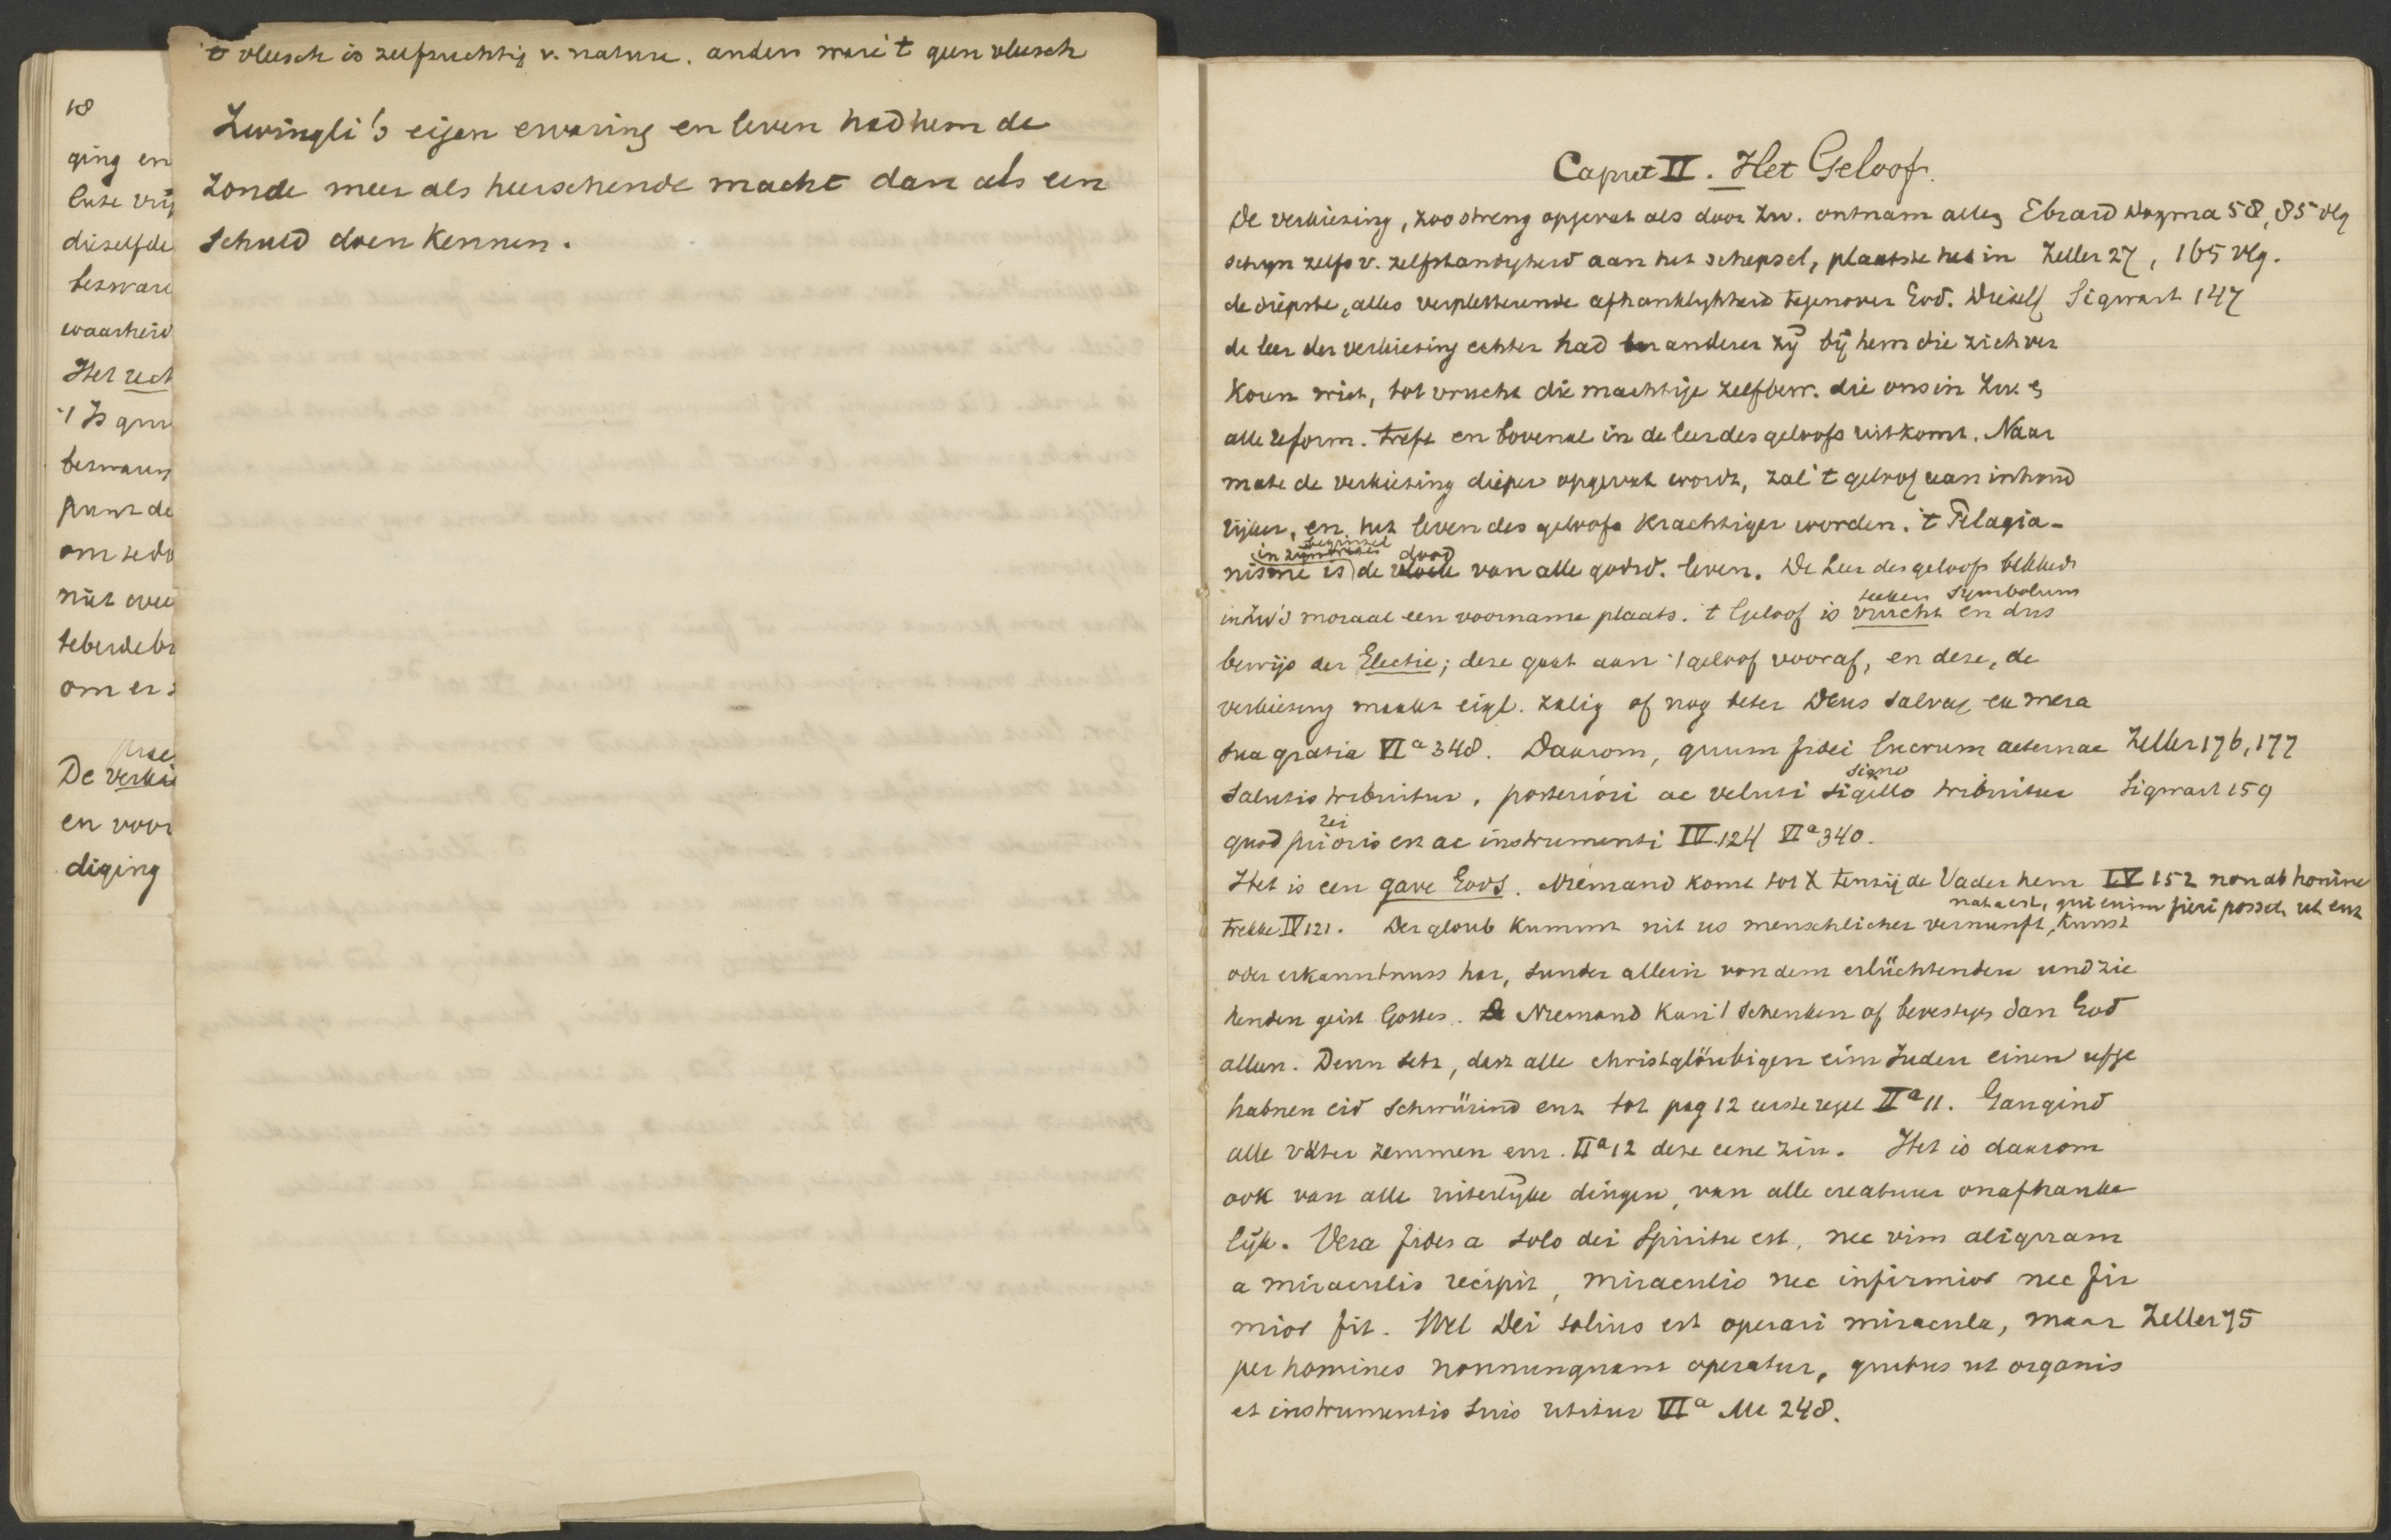 't vleesch is zelfzuchtig v. nature. anders ware 't geen vleesch
Zwingli's eigen ervaring en leven had hem de
zonde meer als heerschende macht dan als een
schuld doen kennen.
18
ging en
dieselfde
bezware
waarheid
Het
bezwaren
punt de
niet
om er
De
en voor
diging
Caput II. Het Geloof.
De verkiezing, zoo streng opgevat als door Zw. ontnam allen Ebrard Dogma 58, 85 vlg
schijn zelfs v. zelfstandigheid aan het schepsel, plaatste het in Zeller 27, 165 vlg.
de diepste, alles verpletterende afhanklijkheid tegenover God. Diezelf Sigwart 147
de leer der verkiezing echter had ter anderer zij bij hem die zich ver
koren wist, tot vrucht die machtige zelfbew. die ons in Zw. &
alle reform. treft en bovenal in de leer des geloofs uitkomt. Naar
mate de verkiezing dieper opgevat wordt, zal 't geloof aan inhoud
rijker, en het leven des geloofs krachtiger worden. 't Pelagia-
in beginsel dood
nisme is de van alle godsd. leven. De leer des geloofs bekleedt
teeken symbolum
in Zw's moraal een voorname plaats. 't Geloof is vrucht en dus
bewijs der Electie; deze gaat aan 't geloof vooraf, en deze, de
verkiezing maakt eigl. zalig of nog beter Deus salvat ex mera
sua gratia VIa 348. Daarom, quum fidei lucrum aeternae Zeller 176, 177
signo
salutis tribuitur, posteriori ac veluti sigillo tribuitur Sigwart 159
rei
quod prioris est ac instrumenti IV.124 VIa 340.
Het is een gave Gods. Niemand komt tot X tenzij de Vader hem IV 152 non ab homine
nata est, qui enim fieri posset, ut enz
trekke IV 121. Der gloub kummt nit us menschlicher vernunft, kunst
oder erkanntnuss har, sunder allein von dem erlüchtenden und zie
henden geist Gottes. Niemand kan 't schenken of bevestigen dan God
alleen. Denn setz, dass alle christglöubigen eim Juden einen ufge
habnen eid schwürind enz tot pag 12 eerste regel IIa 11. Gangind
alle väter zemmen enz. IIa 12 deze eene zin. Het is daarom
ook van alle uiterlijke dingen, van alle creatuur onafhanke
lijk. Vera fides a solo dei Spiritu est, nec vim aliquam
a miraculis recipit, miraculis nec infirmior nec fir
mior fit. Wel Dei solius est operari miracula, maar Zeller 75
per homines nonnunquam operatur, quibus ut organis
et instrumentis suis utitur VIa Mc 248.